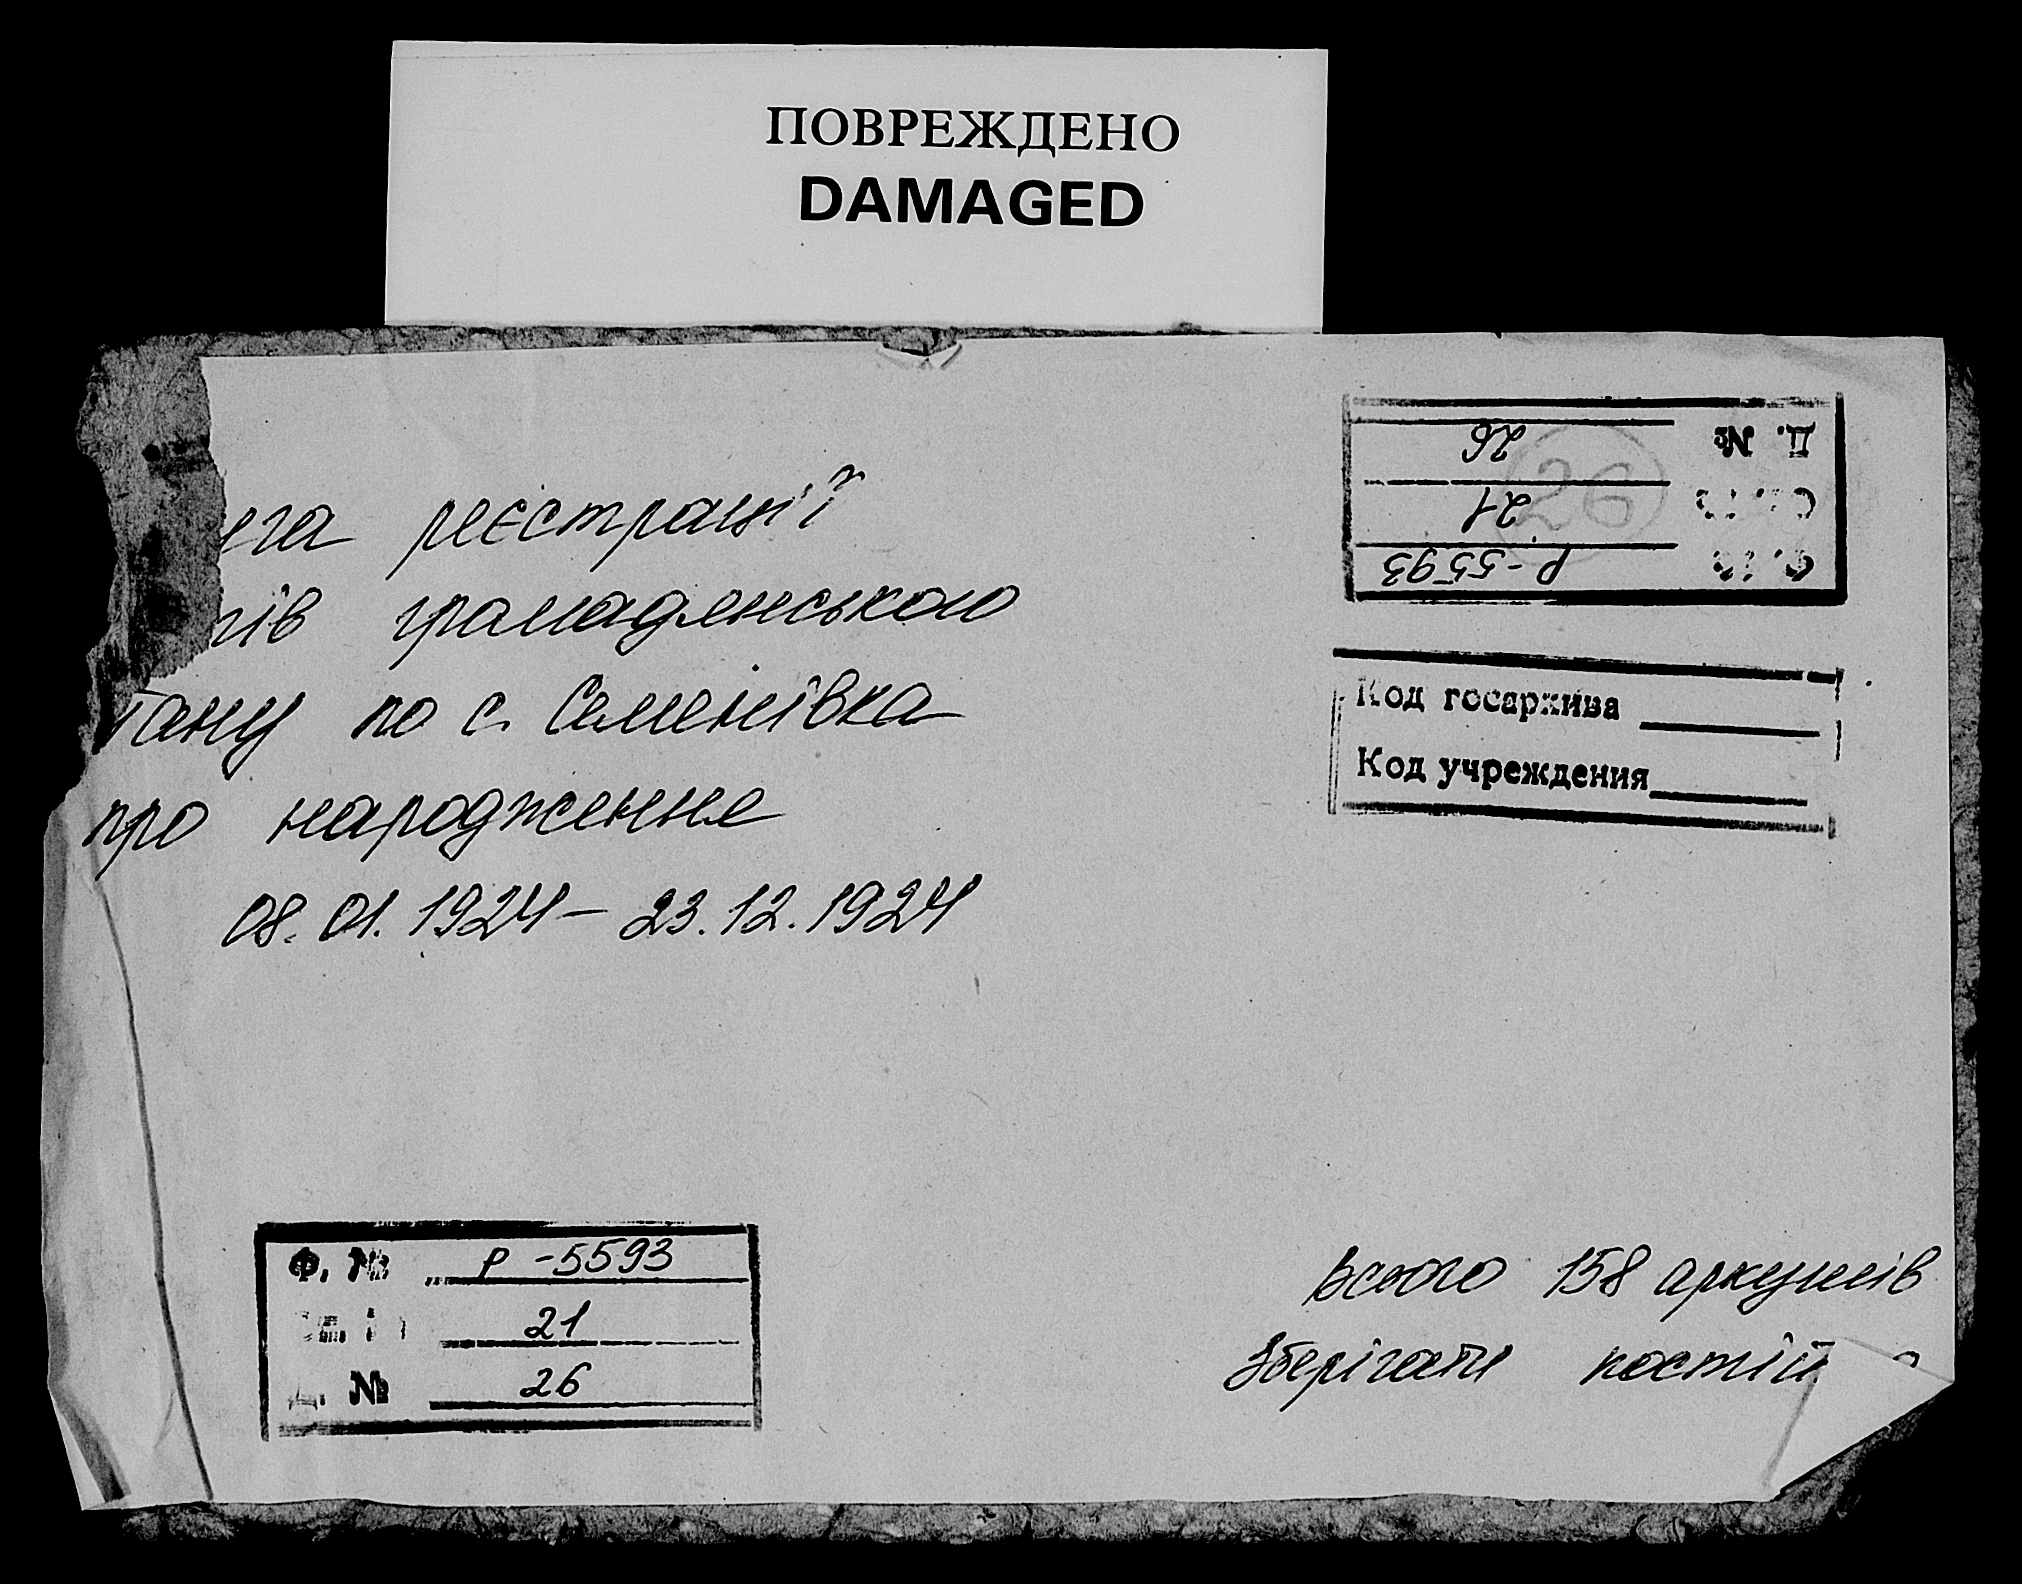 ПОВРЕЖДЕНО
DAMAGED
реєстрації
громадянського
по с. Семенівка
про народження
08.01.1924 – 23.12.1924
Д. № 26
Оп. № 21
Ф. № Р-5593
26
Код госархива
Код учреждения
Ф. № Р-5593
Оп. № 21
Д. № 26
Всього 158 аркушів
Зберігати